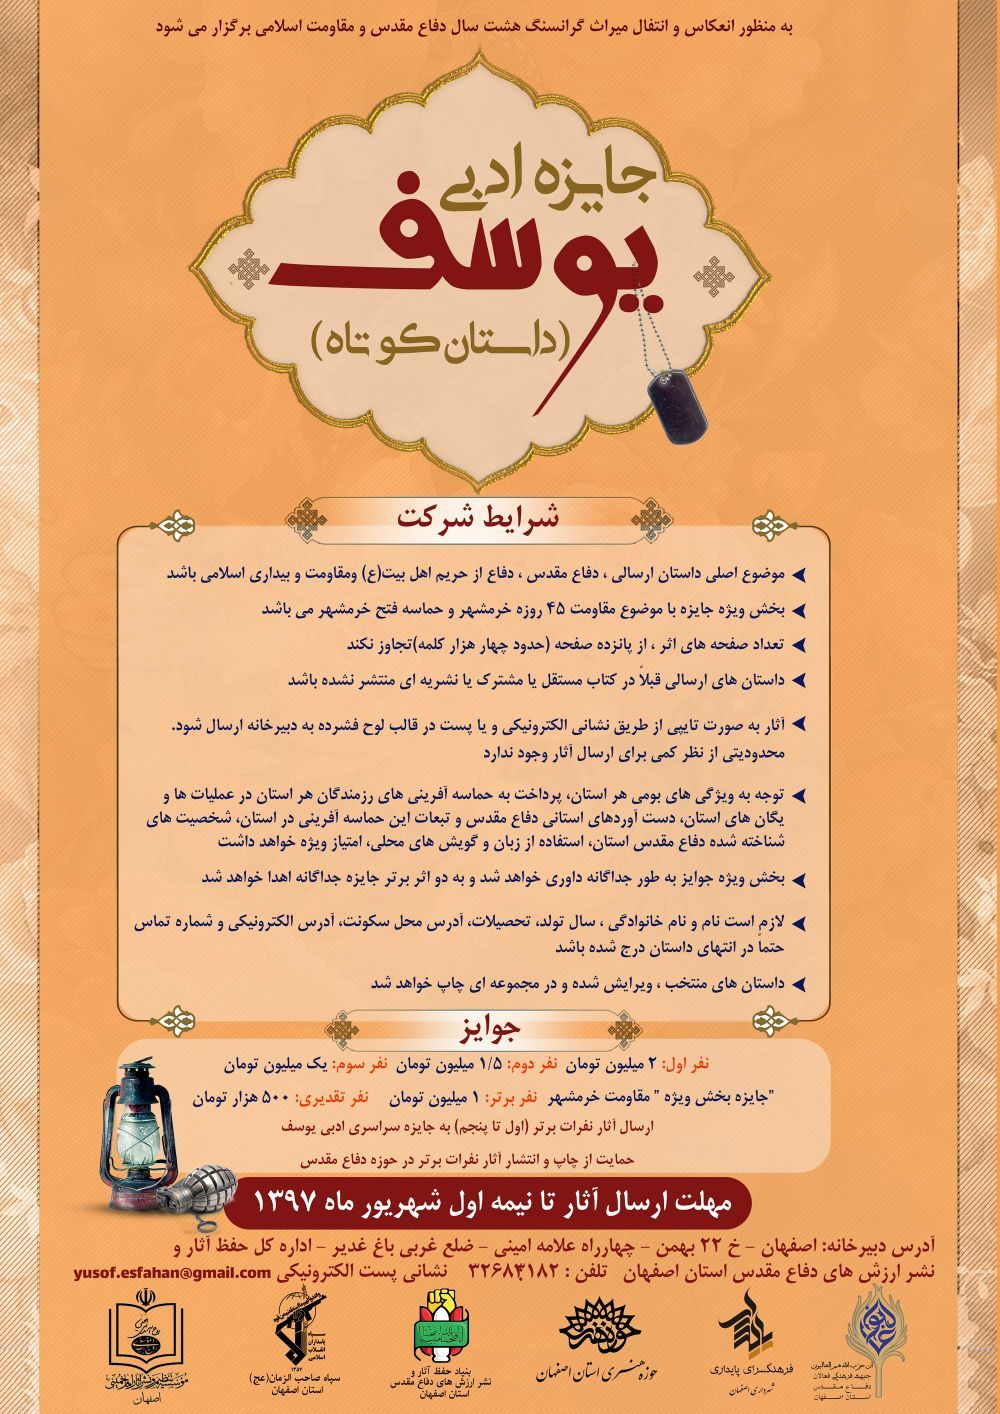 به منظور انعکاس و انتقال میراث گرانسنگ هشت سال دفاع مقدس و مقاومت اسلامی برگزار می شود
جایزه ادبی
یوسف
(داستان کوتاه)
شرایط شرکت
موضوع اصلی داستان ارسالی ، دفاع مقدس ، دفاع از حریم اهل بیت(ع) ومقاومت و بیداری اسلامی باشد
بخش ویژه جایزه با موضوع مقاومت ۴۵ روزه خرمشهر و حماسه فتح خرمشهر می باشد
تعداد صفحه های اثر ، از پانزده صفحه (حدود چهار هزار کلمه)تجاوز نکند
داستان های ارسالی قبلاً در کتاب مستقل یا مشترک یا نشریه ای منتشر نشده باشد
آثار به صورت تایپی از طریق نشانی الکترونیکی و یا پست در قالب لوح فشرده به دبیرخانه ارسال شود.
محدودیتی از نظر کمی برای ارسال آثار وجود ندارد
توجه به ویژگی های بومی هر استان، پرداخت به حماسه آفرینی های رزمندگان هر استان در عملیات ها و
یگان های استان، دست آوردهای استانی دفاع مقدس و تبعات این حماسه آفرینی در استان، شخصیت های
شناخته شده دفاع مقدس استان، استفاده از زبان و گویش های محلی، امتیاز ویژه خواهد داشت
بخش ویژه جوایز به طور جداگانه داوری خواهد شد و به دو اثر برتر جایزه جداگانه اهدا خواهد شد
لازم است نام و نام خانوادگی ، سال تولد، تحصیلات، آدرس محل سکونت، آدرس الکترونیکی و شماره تماس
حتماً در انتهای داستان درج شده باشد
داستان های منتخب ، ویرایش شده و در مجموعه ای چاپ خواهد شد
جوایز
نفر اول: ۲ میلیون تومان نفر دوم: ۱/۵ میلیون تومان نفر سوم: یک میلیون تومان
"جایزه بخش ویژه " مقاومت خرمشهر نفر برتر: ۱ میلیون تومان نفر تقدیری: ۵۰۰ هزار تومان
ارسال آثار نفرات برتر (اول تا پنجم) به جایزه سراسری ادبی یوسف
حمایت از چاپ و انتشار آثار نفرات برتر در حوزه دفاع مقدس
مهلت ارسال آثار تا نیمه اول شهریور ماه ۱۳۹۷
آدرس دبیرخانه: اصفهان - خ ۲۲ بهمن - چهارراه علامه امینی - ضلع غربی باغ غدیر - اداره کل حفظ آثار و
نشر ارزش های دفاع مقدس استان اصفهان تلفن : ۳۲۶۸۳۱۸۲ نشانی پست الکترونیکی yusof.esfahan@gmail.com
جبهه فرهنگی فعالان
دفاع مقدس
استان اصفهان
فرهنگسرای پایداری
شهرداری اصفهان
حوزه هنری استان اصفهان
بنیاد حفظ آثار و
نشر ارزش های دفاع مقدس
استان اصفهان
سپاه
پاسداران
انقلاب
اسلامی
۱۳۵۷
سپاه صاحب الزمان(عج)
استان اصفهان
اصفهان